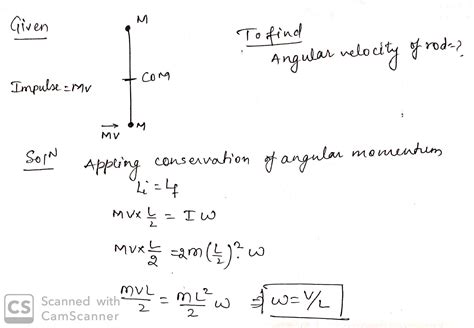 Given
M
To find
Angular velocity of rod=?
COM
Impulse = Mv
MV
M
Solⁿ Appling conservation of angular momentum
Li = Lf
MV x L/2 = I ω
MV x L/2 = 2m(L/2)² ω
MVL/2 = ML²/2 ω ⇒ ω = V/L
CS Scanned with
CamScanner